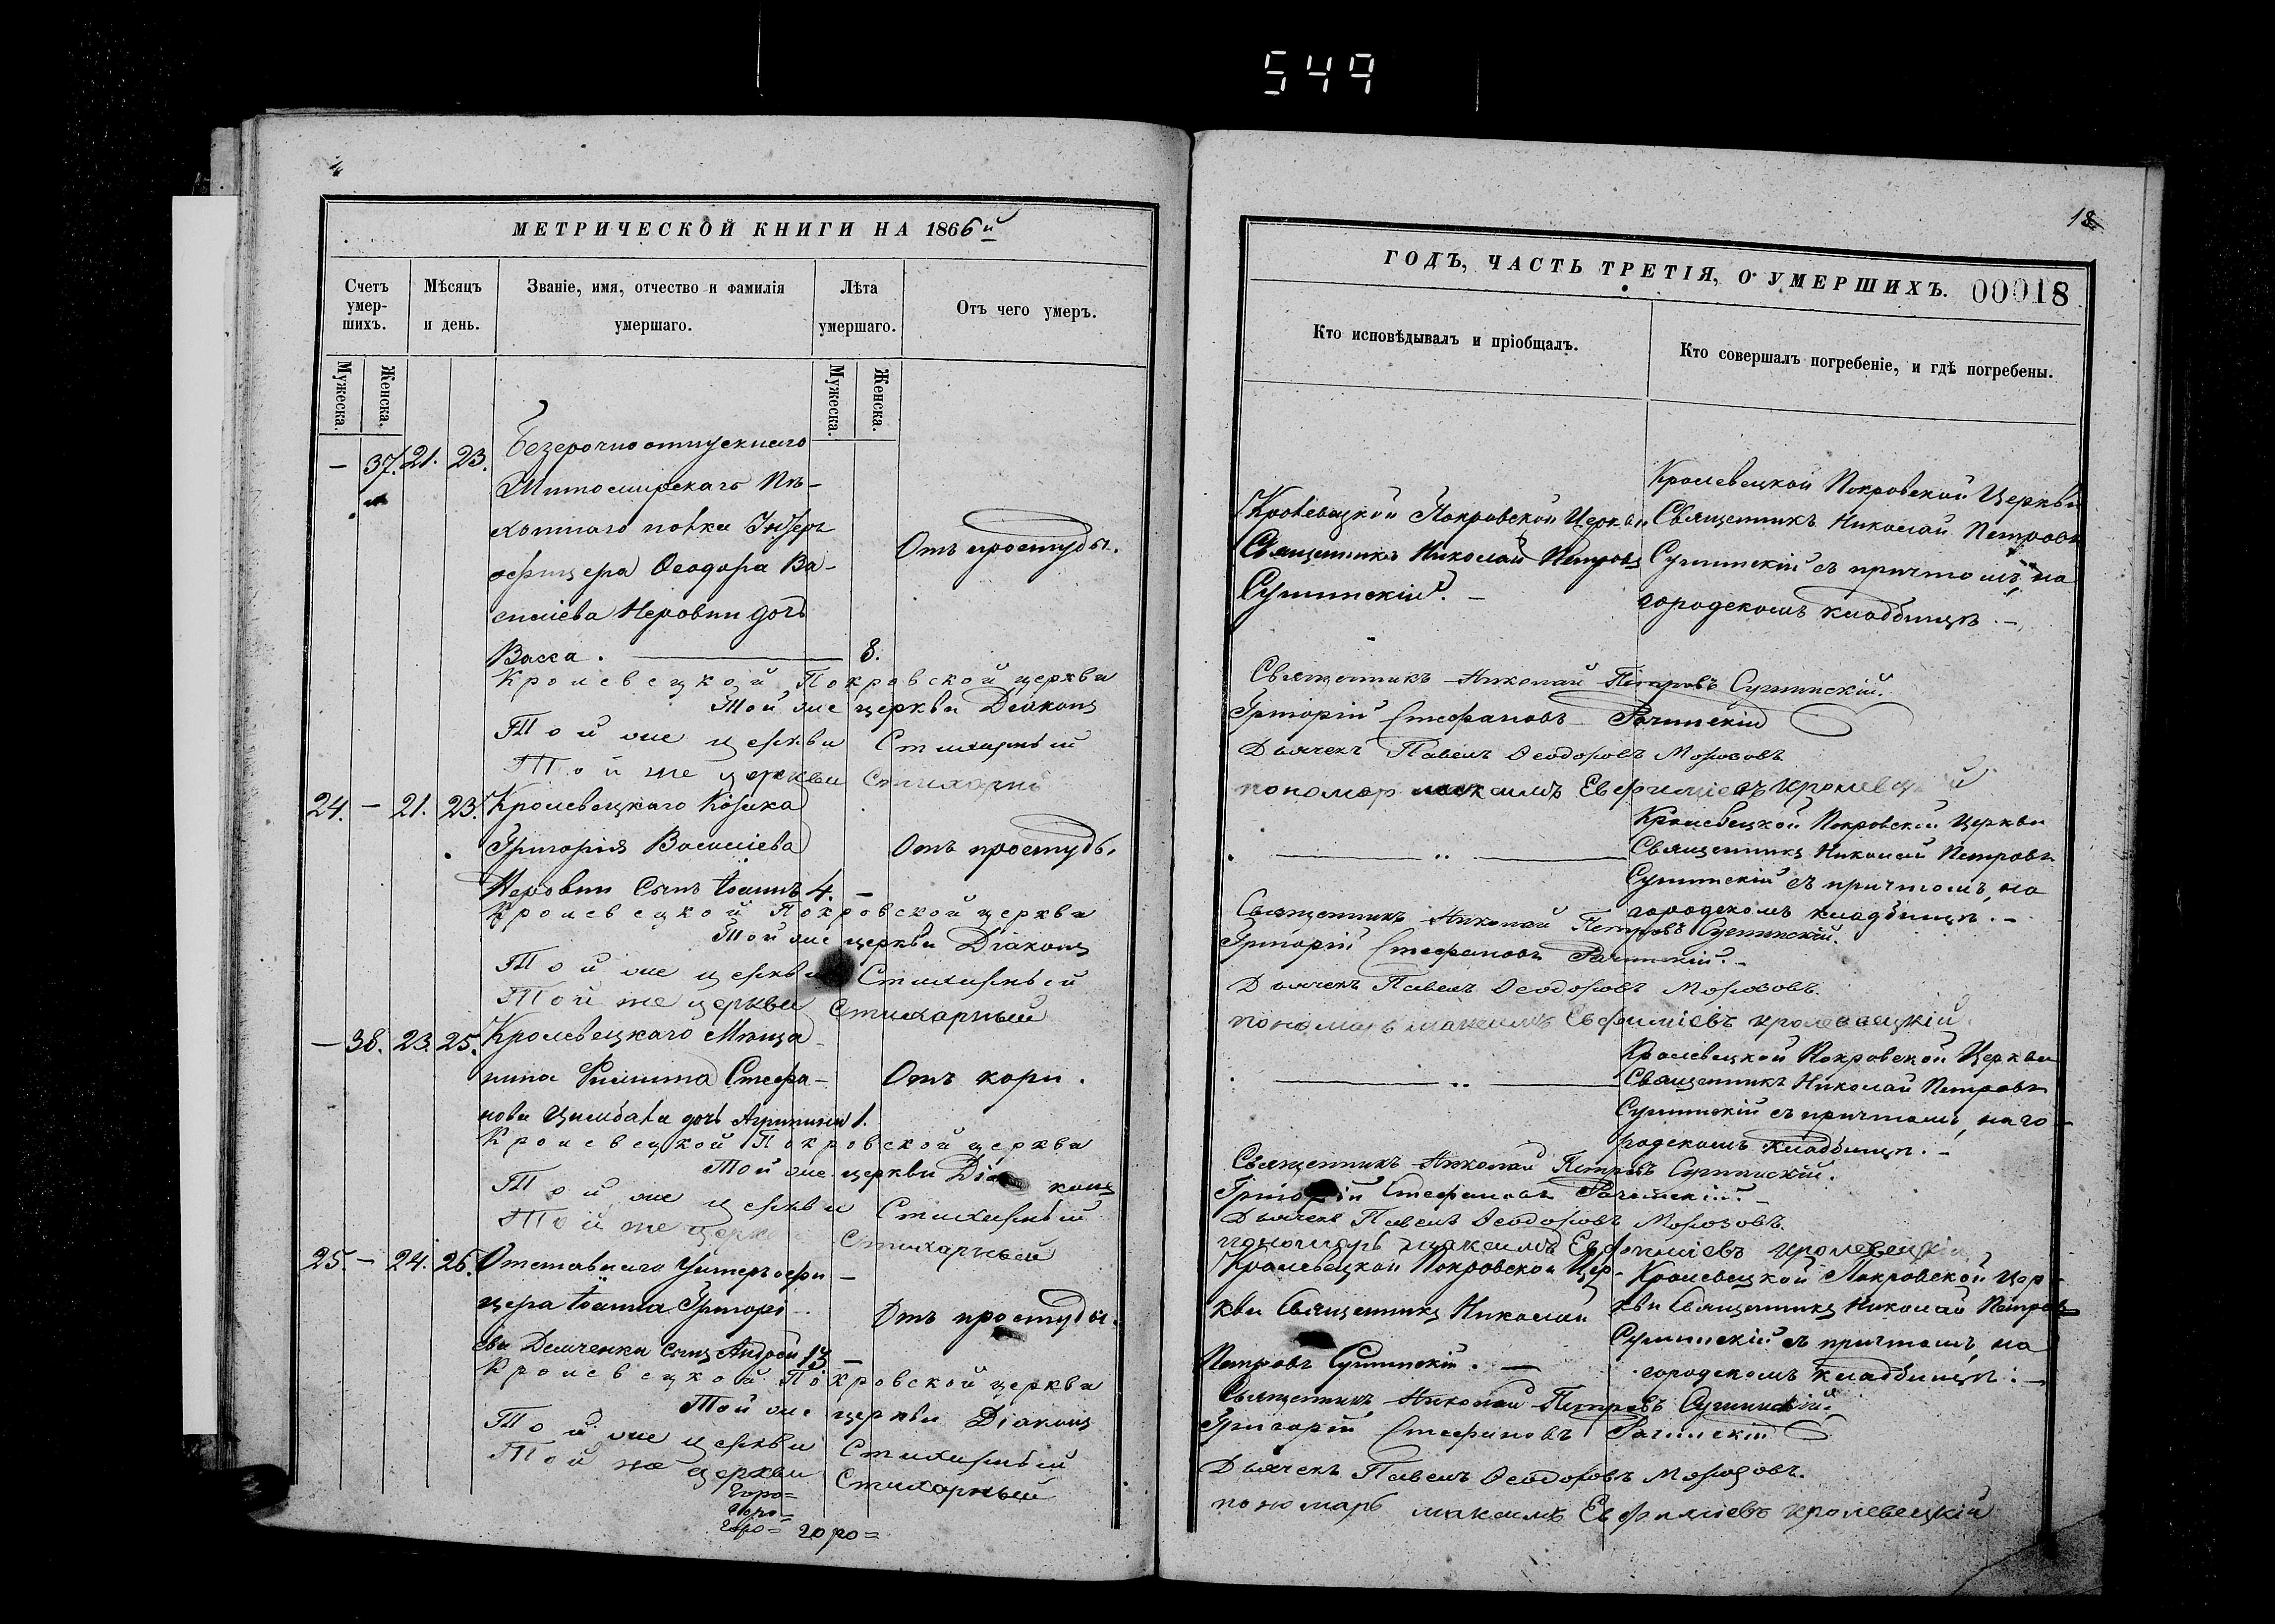 549
МЕТРИЧЕСКОЙ КНИГИ НА 1866й
Счетъ умер-шихъ.
Мѣсяцъ и день.
Званіе, имя, отчество и фамилія умершаго.
Лѣта умершаго.
Отъ чего умеръ.
Мужеска.
Женска.
Мужеска.
Женска.
— 37. 21. 23. Безсрочноотпускнаго
Житомирскаго Пѣ-
хотнаго полка Унтеръ
офицера Ѳеодора Ва-
Отъ простуды.
силіева Неровни дочь
Васса. 8.
Кролевецкой Покровской церкви
Той же церкви Діаконъ
Той же церкви Стихарный
Той же церкви Стихарный
24. — 21. 23. Кролевецкаго Козака
Григорія Василіева Отъ простуды
Неровни Сынъ Іоаннъ 4. —
Кролевецкой Покровской церкви
Той же церкви Діаконъ
Той же церкви Стихарный
Той же церкви Стихарный
— 38. 23. 25. Кролевецкаго Мѣща-
нина Филиппа Стефа- Отъ кори.
нова Цимбала дочь Агрипина 1.
Кролевецкой Покровской церкви
Той же церкви Діаконъ
Той же церкви Стихарный
Той же церкви Стихарный
25. — 24. 26. Отставнаго Унтеръ офи-
цера Іоанна Григорі- Отъ простуды.
ева Демченка сынъ Андрей 13 —
Кролевецкой Покровской церкви
Той же церкви Діаконъ
Той же церкви Стихарный
Той же церкви Стихарный
Горо=
Горо=
Горо= горо=
18
ГОДЪ, ЧАСТЬ ТРЕТІЯ, О УМЕРШИХЪ. 00018
Кто исповѣдывалъ и пріобщалъ.
Кто совершалъ погребеніе, и гдѣ погребены.
Кролевецкой Покровской Церкви
Священникъ Николай Петровъ
Сументскій. —
Кролевецкой Покровской Церкви
Священникъ Николай Петровъ
съ причтомъ, на
городскомъ кладбищѣ. —
Священникъ Николай Петровъ
Григорій Стефановъ Рачинскій
Дьячекъ Павелъ Ѳеодоровъ Морозовъ.
пономарь максимъ Евфиміевъ кролевецкій
Кролевецкой Покровской Церкви
Священникъ Николай Петровъ
съ причтомъ, на
городскомъ кладбищѣ. —
Священникъ Николай Петровъ
Григорій Стефановъ Рачинскій. —
Дьячекъ Павелъ Ѳеодоровъ Морозовъ.
пономарь максимъ Евфиміевъ кролевецкій.
Кролевецкой Покровской Церкви
Священникъ Николай Петровъ
съ причтомъ, на го-
родскомъ кладбищѣ. —
Священникъ Николай Петровъ
Григорій Стефановъ Рачинскій. —
Дьячекъ Павелъ Ѳеодоровъ Морозовъ.
пономарь максимъ Евфиміевъ кролевецкій
Кролевецкой Покровской Цер-
кви Священникъ Николай
Петровъ
Кролевецкой Покровской Цер-
кви Священникъ Николай Петровъ
съ причтомъ, на
городскомъ кладбищѣ. —
Священникъ Николай Петровъ
Григорій Стефановъ Рачинскій
Дьячекъ Павелъ Ѳеодоровъ Морозовъ.
пономарь максимъ Евфиміевъ кролевецкій